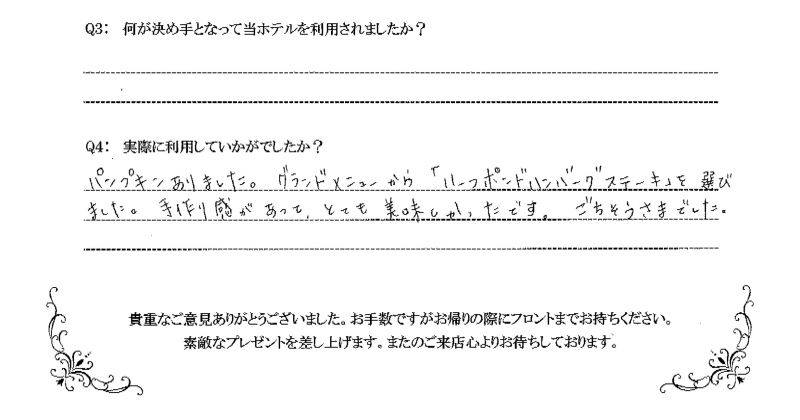 Q3: 何が決め手となって当ホテルを利用されましたか？
Q4: 実際に利用していかがでしたか？
パンプキンありました。グランドメニューから「ハーフポンドハンバーグステーキ」を選び
ました。手作り感があって、とても美味しかったです。ごちそうさまでした。
貴重なご意見ありがとうございました。お手数ですがお帰りの際にフロントまでお持ちください。
素敵なプレゼントを差し上げます。またのご来店心よりお待ちしております。